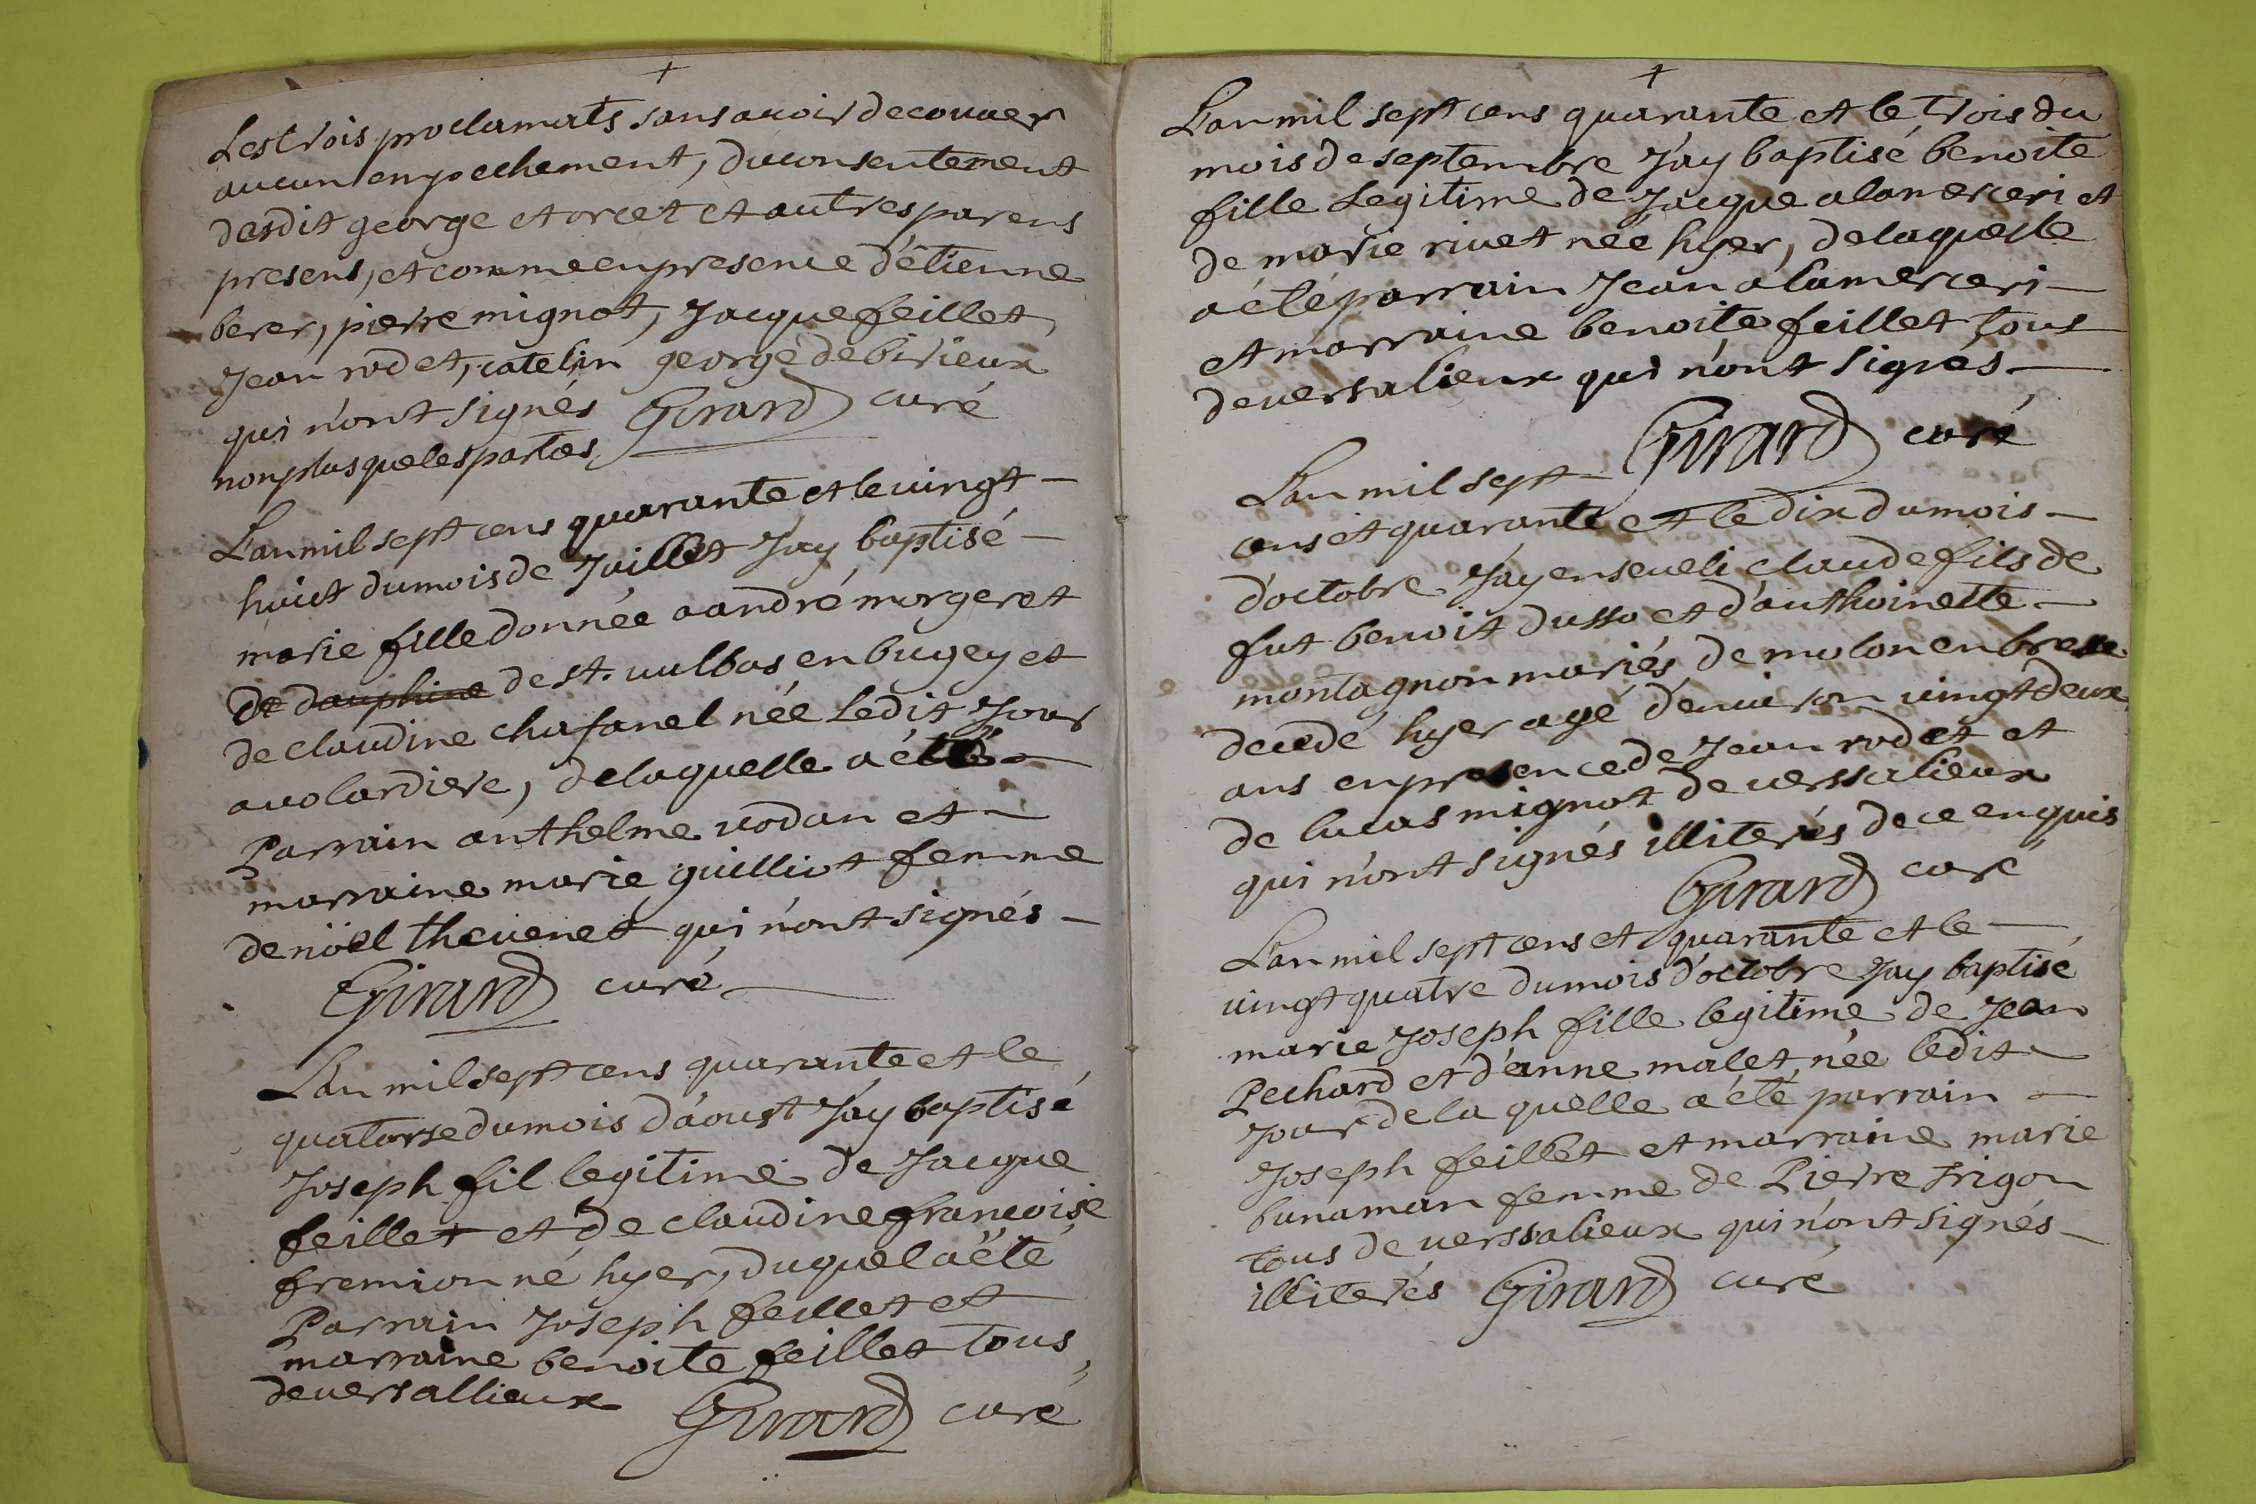 +
Les trois proclamats sans avoir decouver
aucun empechement, du consentement
desdit george et orcet et autres parens
presens, et comme en presence d'étienne
berer, pierre mignot, Jacque feillet,
Jean rodet, catelin george de birieux
qui n'ont signés Girard curé
non plus que les parties
L'an mil sept cens quarante et le vingt
huict du mois de Juillet J'ay baptisé
marie fille donnée a andré morgeret
de dauphine de st. vulbas en bugey et
de claudine chafanel née Ledit Jour
a volardiere, de laquelle a été
Parrain anthelme vodan et
marraine marie guilliot femme
de nöel thevenet qui n'ont signés
Girard curé
L'an mil sept cens quarante et le
quatorse du mois d'aoust J'ay baptisé
Joseph fil legitime de Jacque
feillet et de claudine francoise
fremion né hyer, duquel a été
Parrain Joseph feillet et
marraine benoite feillet tous
de versallieux Girard curé
+
L'an mil sept cens quarante et le trois du
mois de septembre J'ay baptisé benoite
fille Legitime de Jacque alamerceri et
de marie rivet née hyer, de laquelle
a été parrain Jean alamerceri
et marraine benoite feillet tous
de versalieux qui n'ont signés
Girard curé
L'an mil sept
cens et quarante et le dix du mois
d'octobre J'ay enseveli claude fils de
fut benoit dusso et d'anthoinette
montagnon mariés de molon en bresse
decedé hyer agé d'environ vingt deux
ans en presence de Jean rodet et
de lucas mignot de verssalieux
qui n'ont signés illiterés de ce enquis
Girard curé
L'an mil sept cens et quarante et le
vingt quatre du mois d'octobre J'ay baptisé
marie Joseph fille legitime de Jean
Pechard et d'anne malet, née ledit
Jour de la quelle a été parrain
Joseph feillet et marraine marie
bunaman femme de Pierre frigon
tous de verssalieux qui n'ont signés
illiterés Girard curé